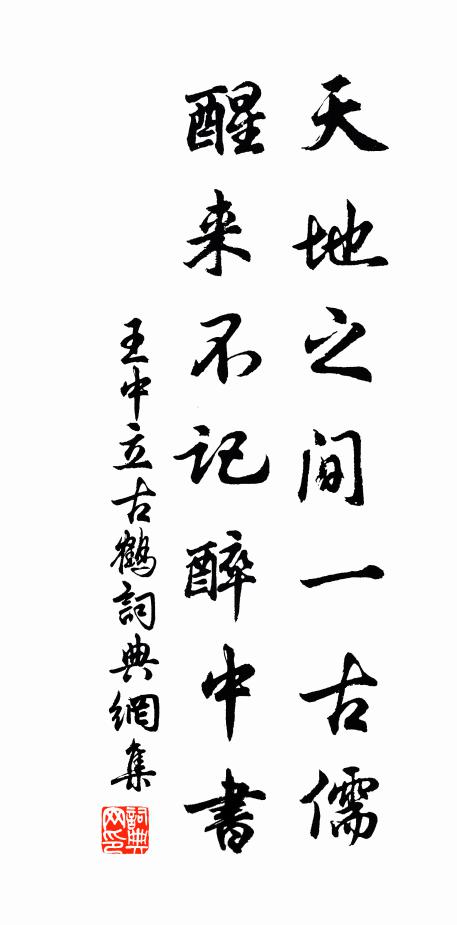 天地之间一古儒
醒来不记醉中書
王中立古鶴詞典網集
詞典
网印